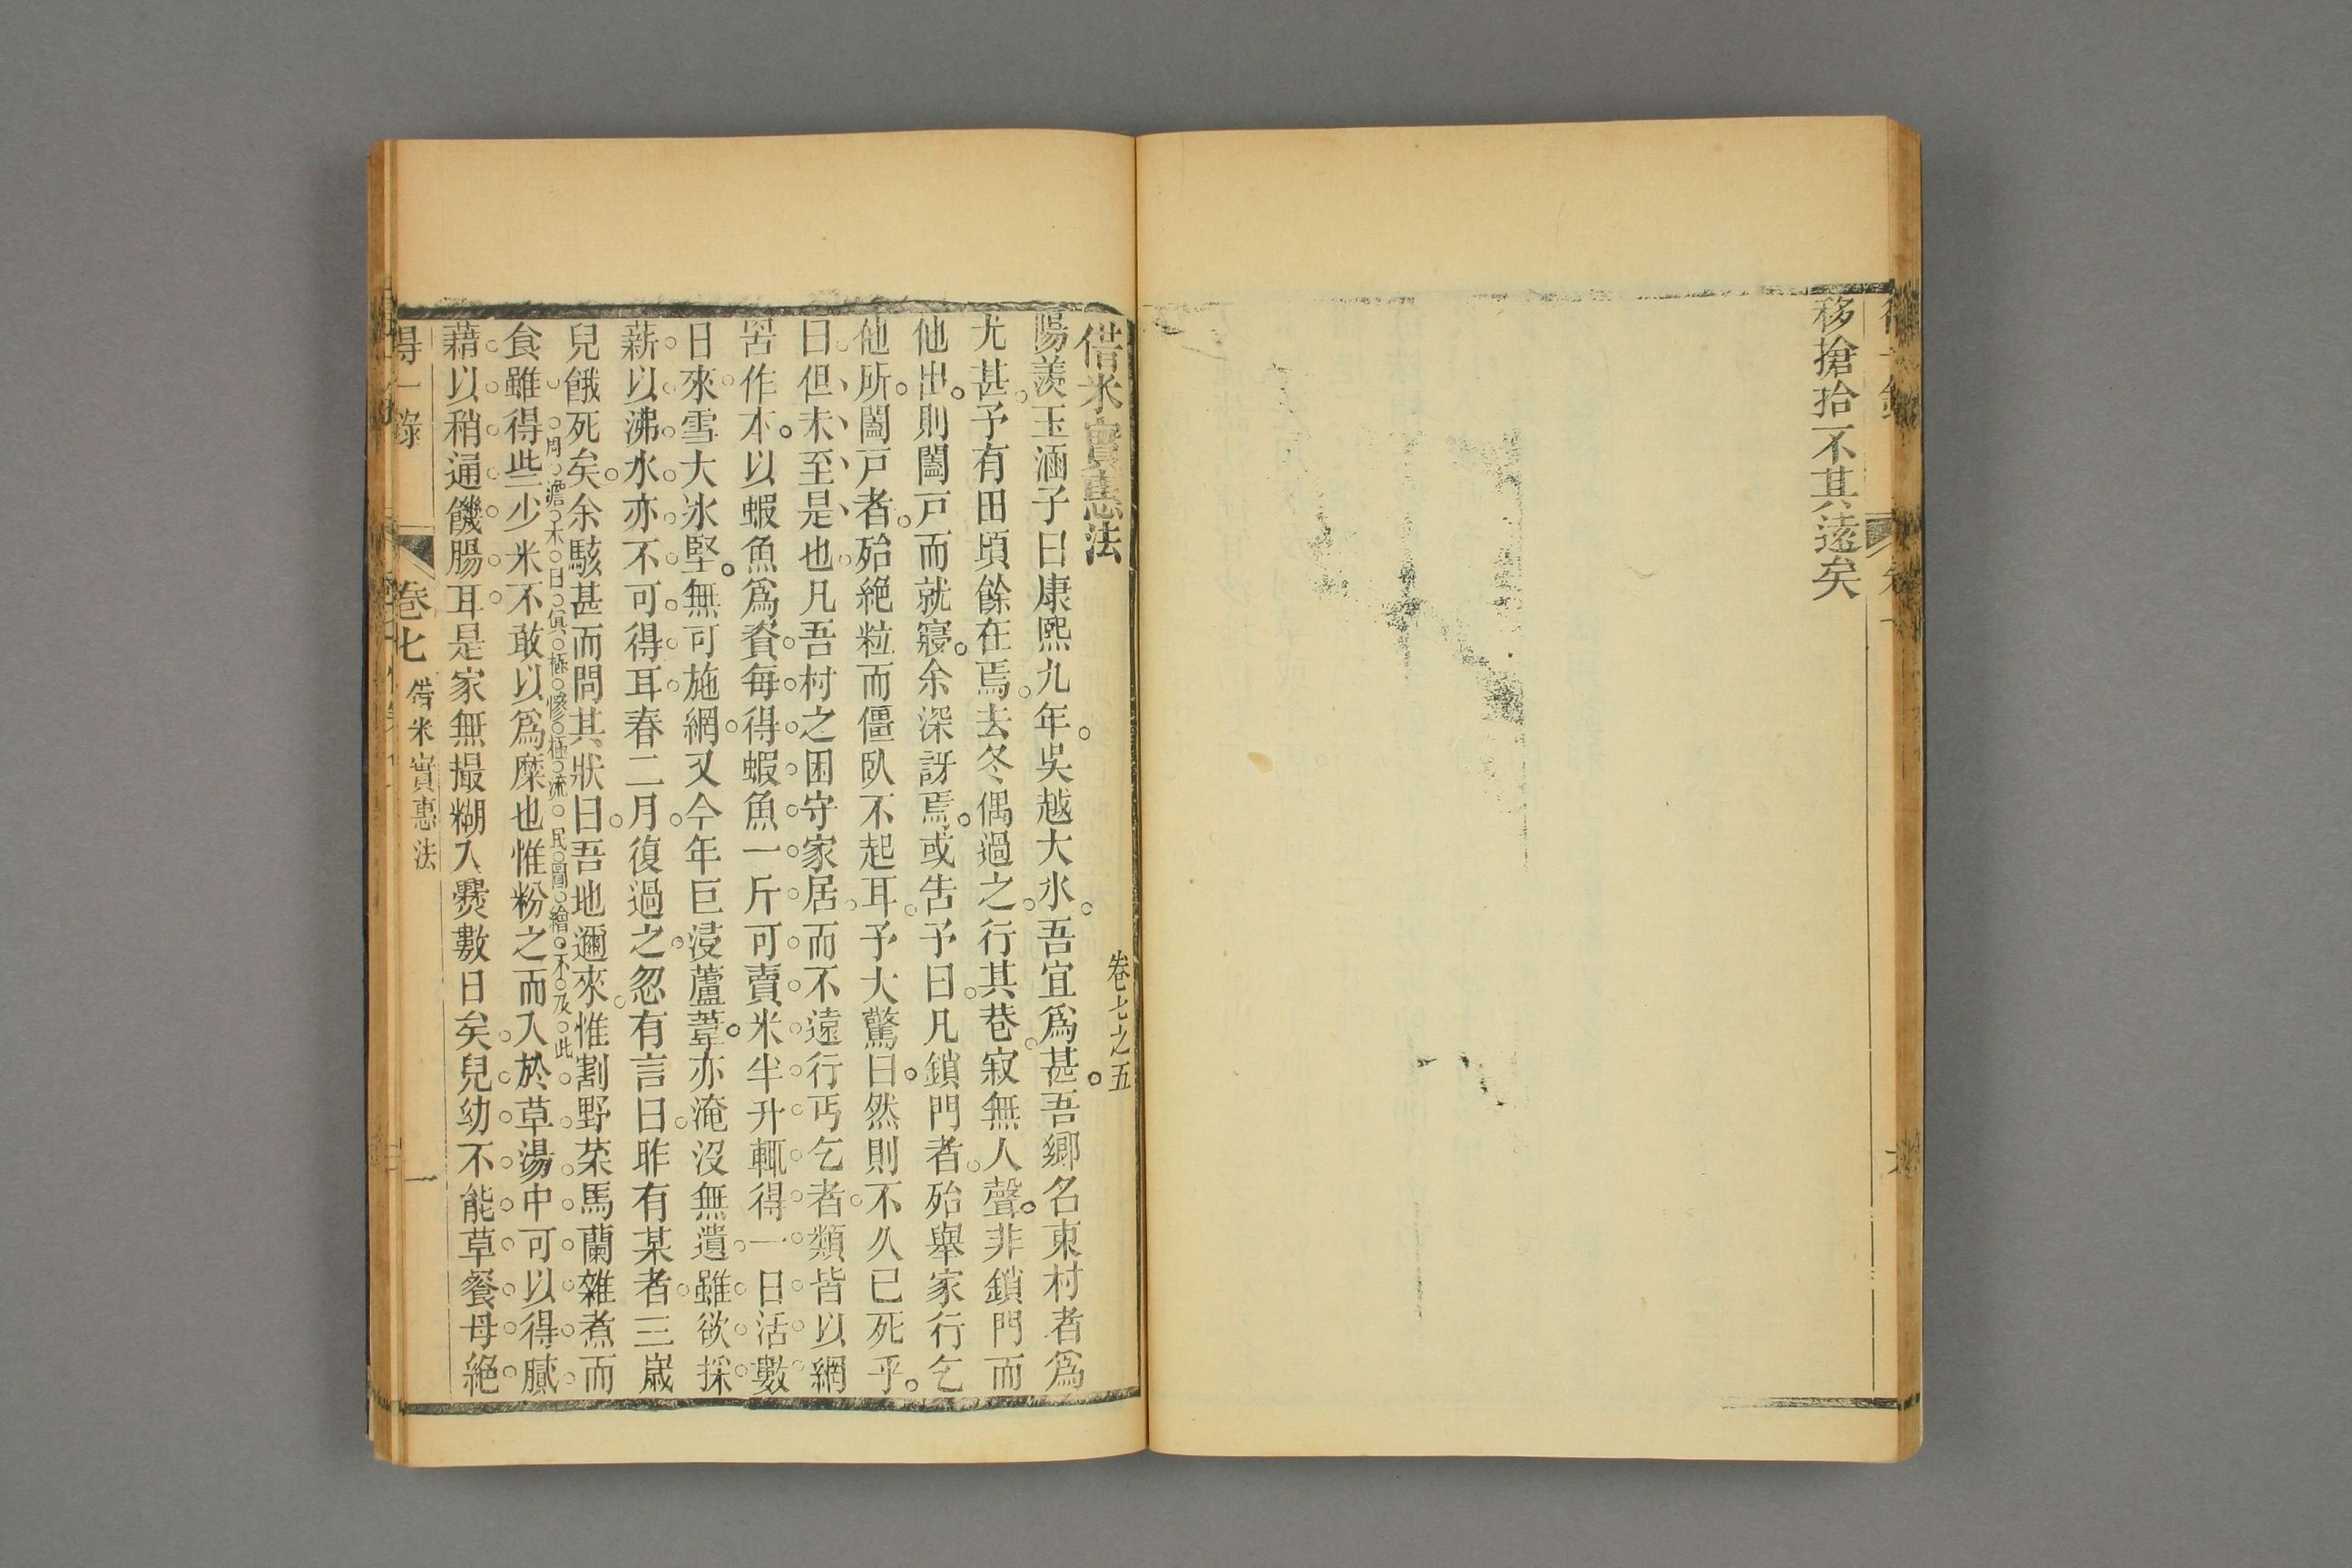 移搶拾不其遠矣
借米實惠法
卷七之五
陽羨玉涵子曰康熙九年。吳越大水。吾宜爲甚。吾鄉名東村者爲
尤甚。予有田頃餘在焉。去冬偶過之。行其巷。寂無人聲。非鎖門而
他出。則闔戸而就寢。余深訝焉。或告予曰。凡鎖門者。殆舉家行乞
他所。闔戸者。殆絶粒而僵臥不起耳。予大驚曰。然則不久已死乎。
曰。但未至是也。凡吾村之困守家居。而不遠行丐乞者。類皆以網
罟作本。以蝦魚爲資。每得蝦魚一斤。可賣米半升。輒得一日活。數
日來。雪大氷堅。無可施網。又今年巨浸。蘆葦亦淹沒無遺。雖欲採
薪以沸水。亦不可得耳。春二月。復過之。忽有言曰。昨有某者。三歲
兒餓死矣。余駭甚而問其狀。曰。吾地邇來。惟割野菜馬蘭雜煮而
周澹木曰眞極慘極流民圖繪不及此
食。雖得些少米。不敢以爲糜也。惟粉之而入於草湯中。可以得膩
藉以稍通饑腸耳。是家無撮糊入爨數日矣。兒幼不能草餐。母絶
得一錄
卷七
借米實惠法
一